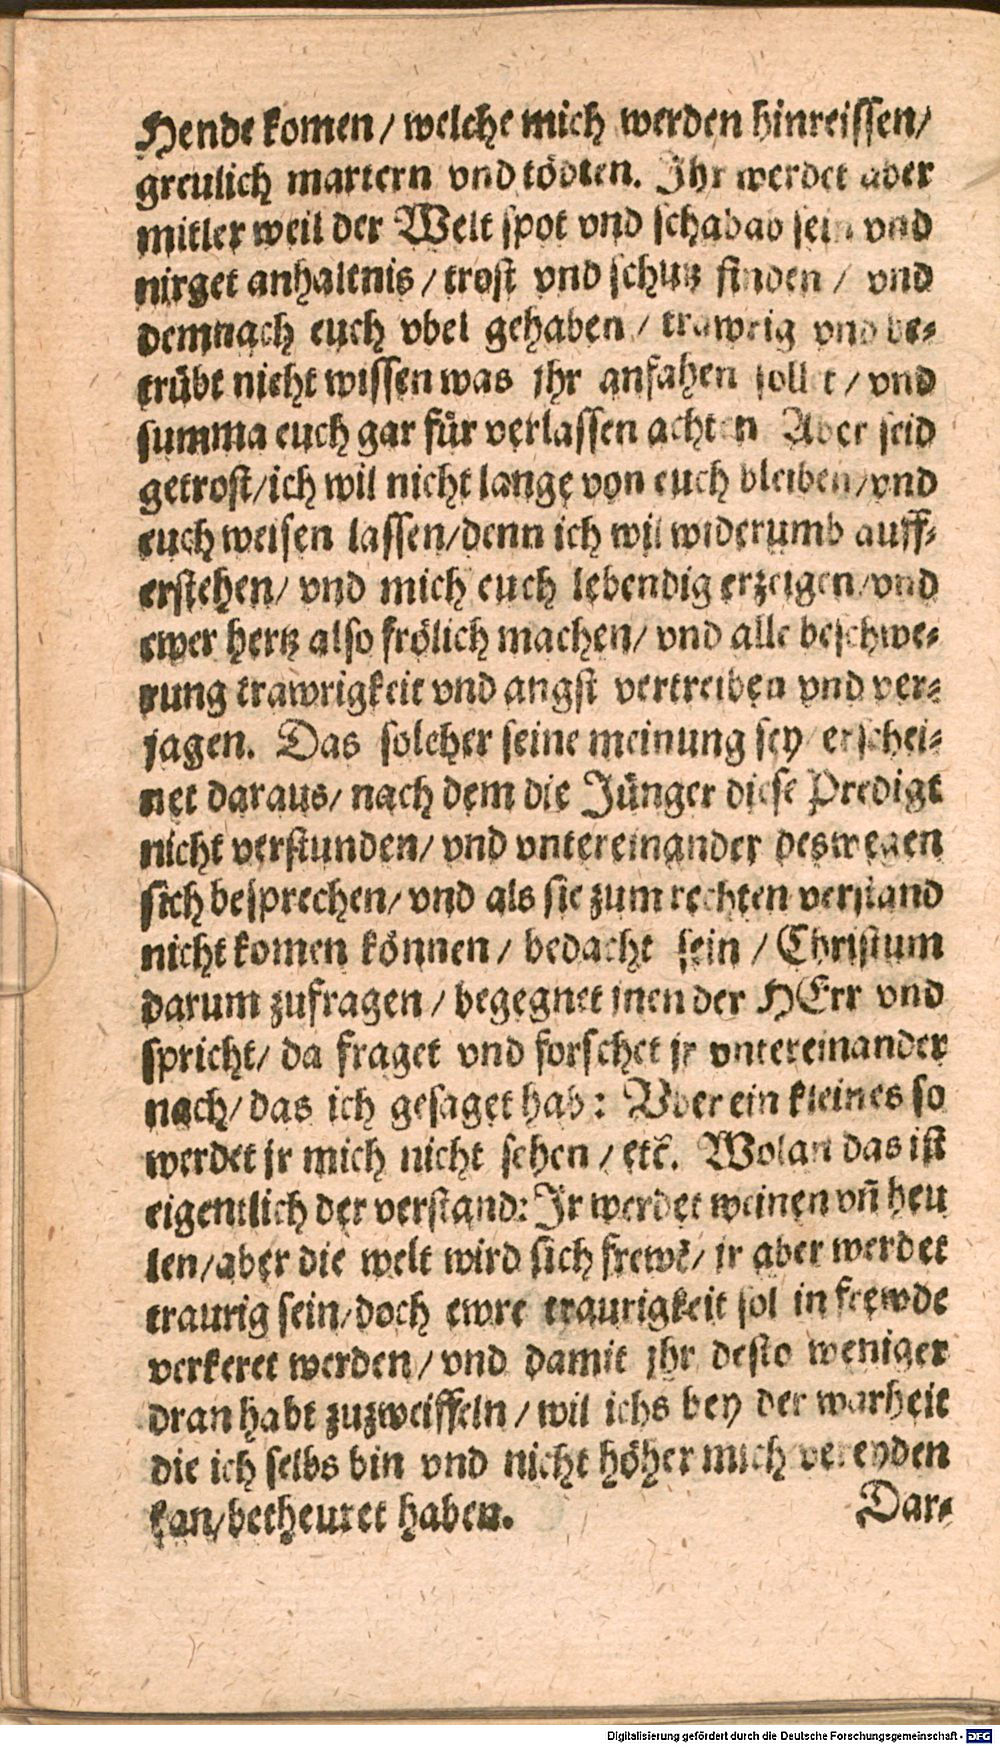 Hende komen / welche mich werden hinreissen /
greulich martern vnd tödten. Ihr werdet aber
mitler weil der Welt spot vnd schabab sein vnd
nirget anhaltnis / trost vnd schutz finden / vnd
demnach euch vbel gehaben / trawrig vnd be-
trübt nicht wissen was jhr anfahen sollet / vnd
summa euch gar für verlassen achten Aber seid
getrost / ich wil nicht lange von euch bleiben / vnd
euch weisen lassen / denn ich wil widerumb auff-
erstehen / vnd mich euch lebendig erzeigen / vnd
ewer hertz also frölich machen / vnd alle beschwe-
rung trawrigkeit vnd angst vertreiben vnd ver-
jagen. Das solcher seine meinung sey / erschei-
net daraus / nach dem die Jünger diese Predigt
nicht verstunden / vnd vntereinander deswegen
sich besprechen / vnd als sie zum rechten verstand
nicht komen können / bedacht sein / Christum
darum zufragen / begegnet inen der HErr vnd
spricht / da fraget vnd forschet jr vntereinander
nach / das ich gesaget hab: Vber ein kleines so
werdet jr mich nicht sehen / etc̃. Wolan das ist
eigentlich der verstand: Jr werdet weinen vñ heu
len / aber die welt wird sich frewẽ / jr aber werdet
traurig sein / doch ewre traurigkeit sol in frewde
verkeret werden / vnd damit jhr desto weniger
dran habt zuzweiffeln / wil ichs bey der warheit
die ich selbs bin vnd nicht höher mich vereyden
kan / betheuret haben.
Dar-
Digitalisierung gefördert durch die Deutsche Forschungsgemeinschaft - DFG